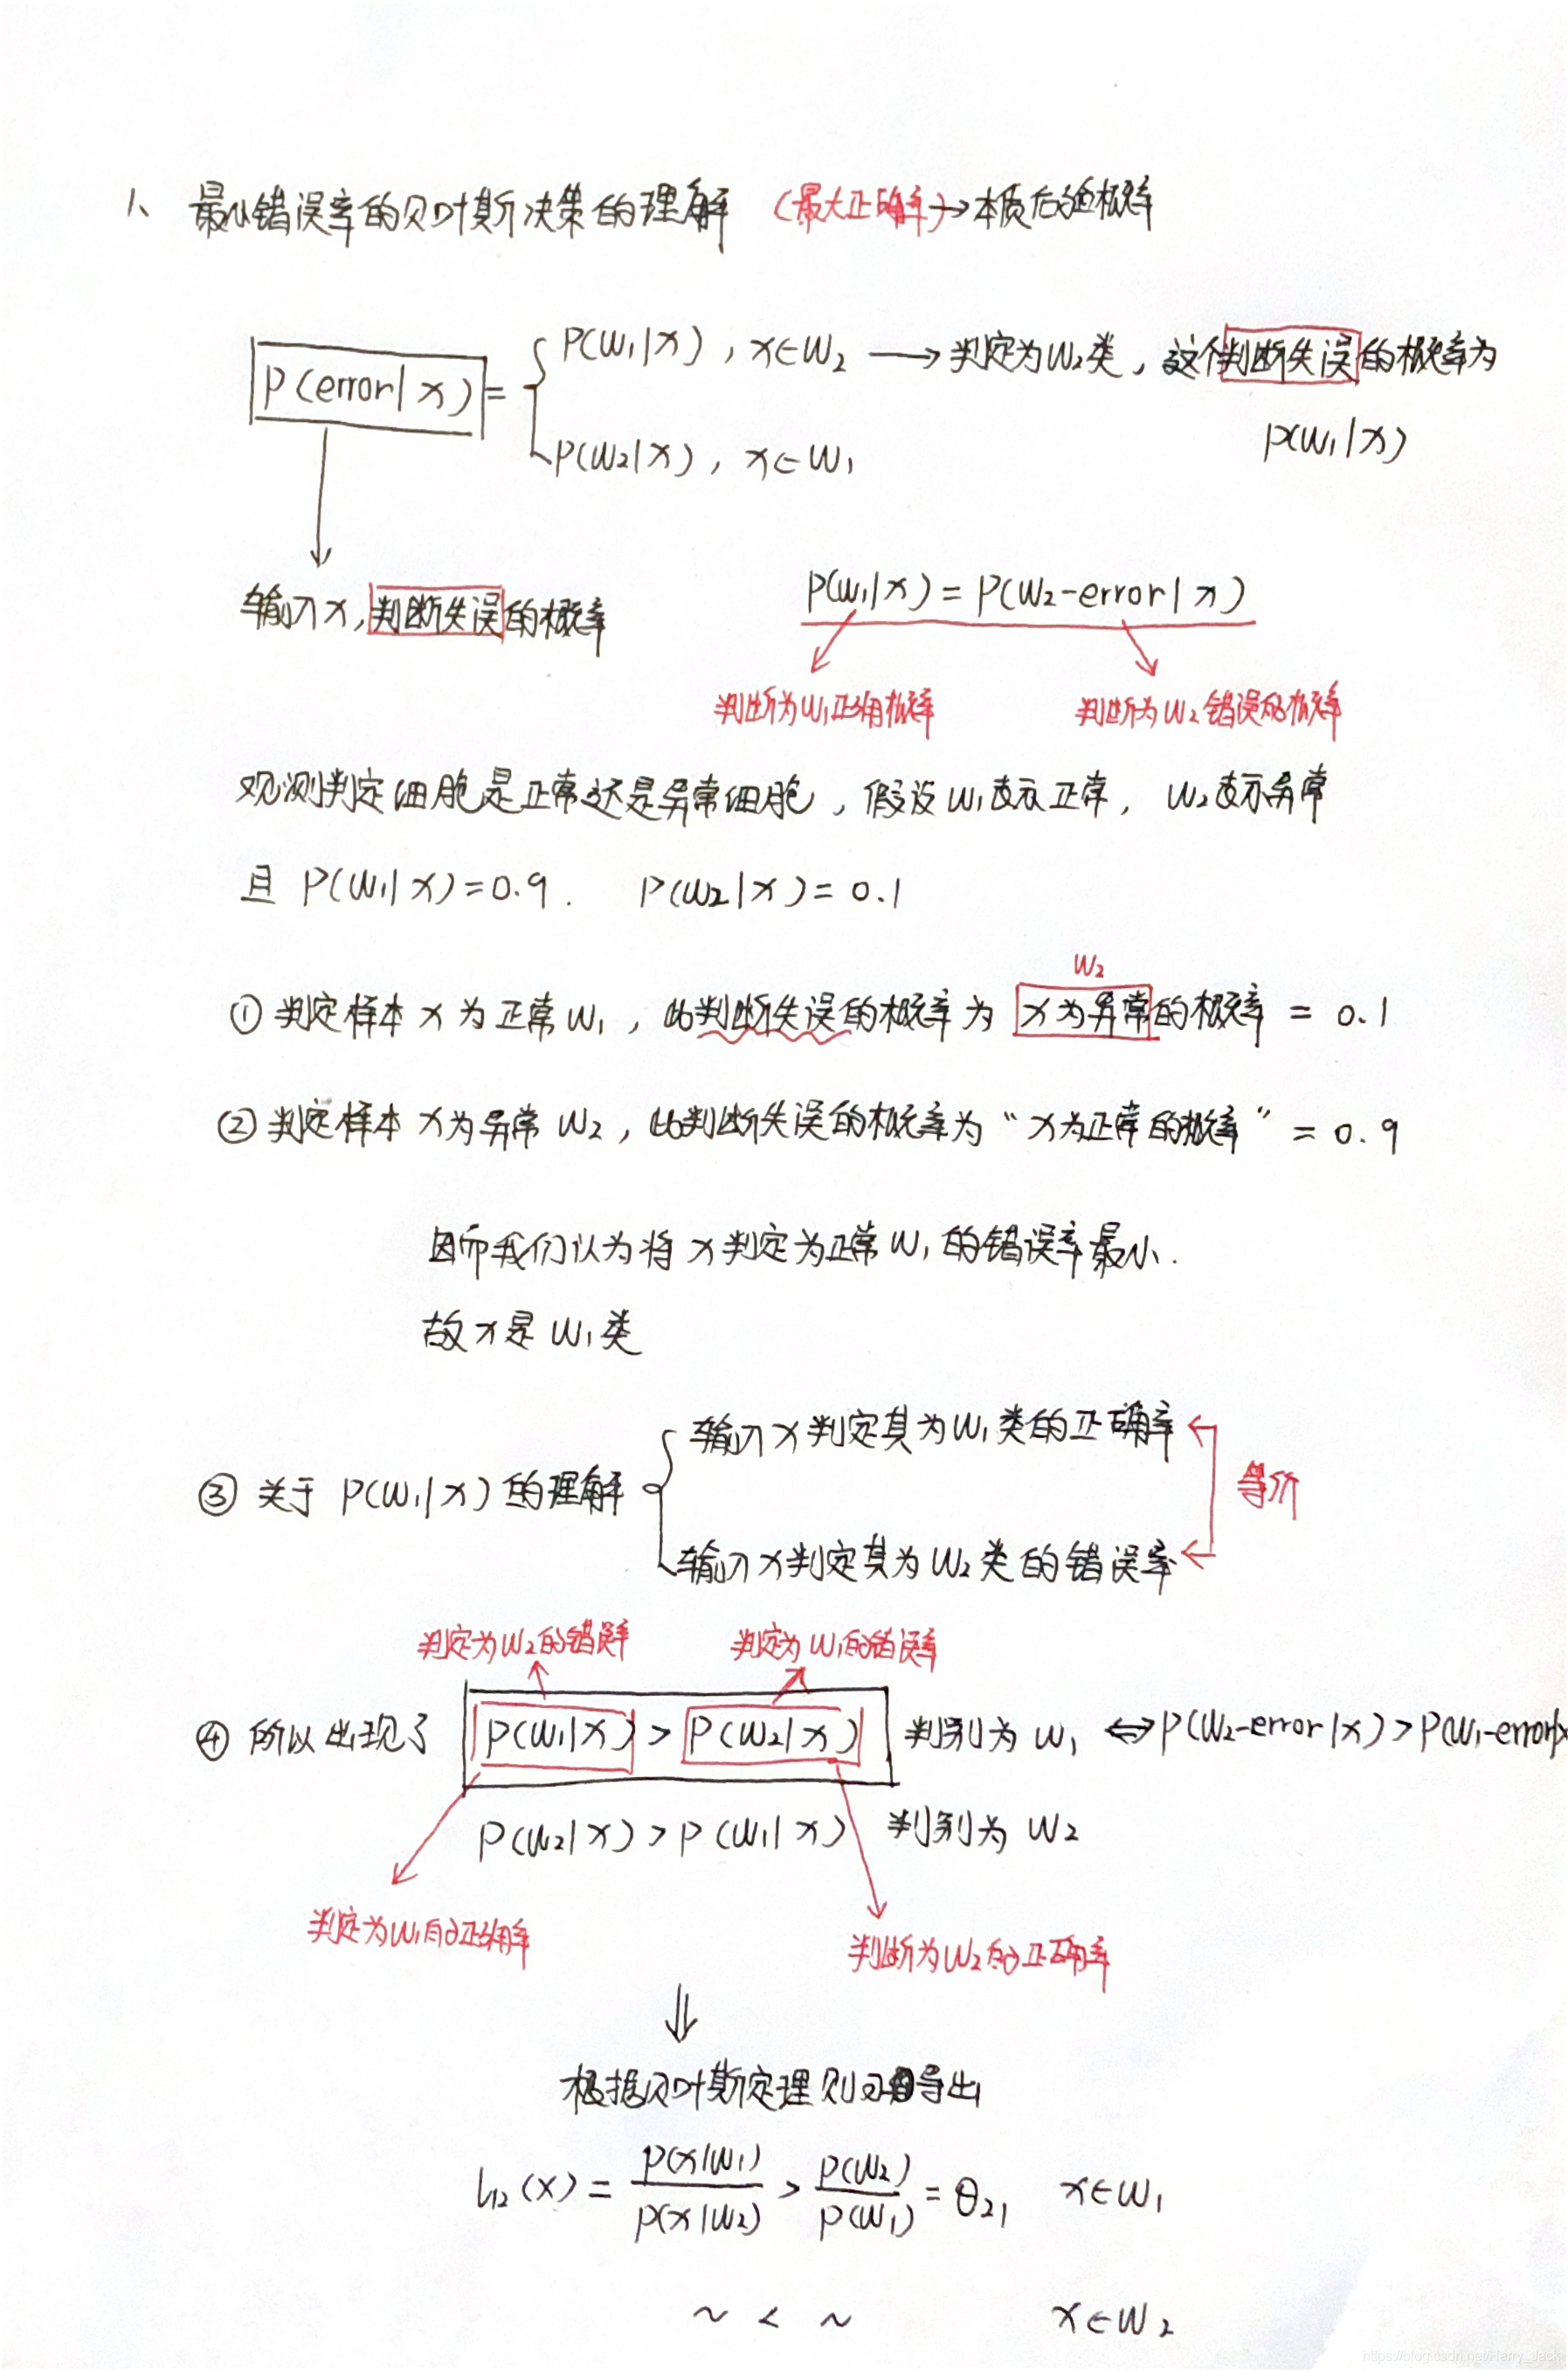 1、最小错误率的贝叶斯决策的理解 (最大正确率)→本质后验概率
P(error|x)= { P(W₁|x), x∈W₂ → 判定为W₂类,这个判断失误的概率为
P(W₁|x)
P(W₂|x), x∈W₁
输入x,判断失误的概率
P(W₁|x)=P(W₂-error|x)
判断为W₁正确概率 判断为W₂错误的概率
观测判定细胞是正常还是异常细胞,假设W₁表示正常, W₂表示异常
且 P(W₁|x)=0.9. P(W₂|x)=0.1
W₂
① 判定样本x为正常W₁,此判断失误的概率为 x为异常的概率 = 0.1
② 判定样本x为异常W₂,此判断失误的概率为“x为正常的概率” = 0.9
因而我们认为将x判定为正常W₁的错误率最小.
故x是W₁类
输入x判定其为W₁类的正确率
③ 关于P(W₁|x)的理解 { 等价
输入x判定其为W₂类的错误率
判定为W₂的错误率 判定为W₁的错误率
④ 所以出现了 P(W₁|x) > P(W₂|x) 判别为W₁ ⇔ P(W₂-error|x)>P(W₁-error|x
P(W₂|x)>P(W₁|x) 判别为W₂
判定为W₁的正确率 判断为W₂的正确率
⇓
根据贝叶斯定理则可导出
l₁₂(x) = P(x|W₁)/P(x|W₂) > P(W₂)/P(W₁) = θ₂₁ x∈W₁
~ < ~ x∈W₂
https://blog.csdn.net/Harry_Jack